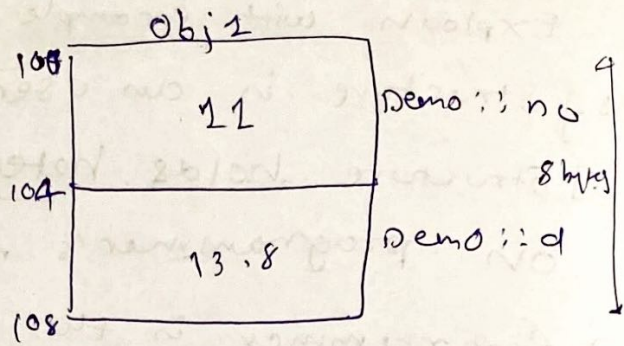 Obj1
100
11
Demo :: no
104
8 bytes
13.8
Demo :: d
108